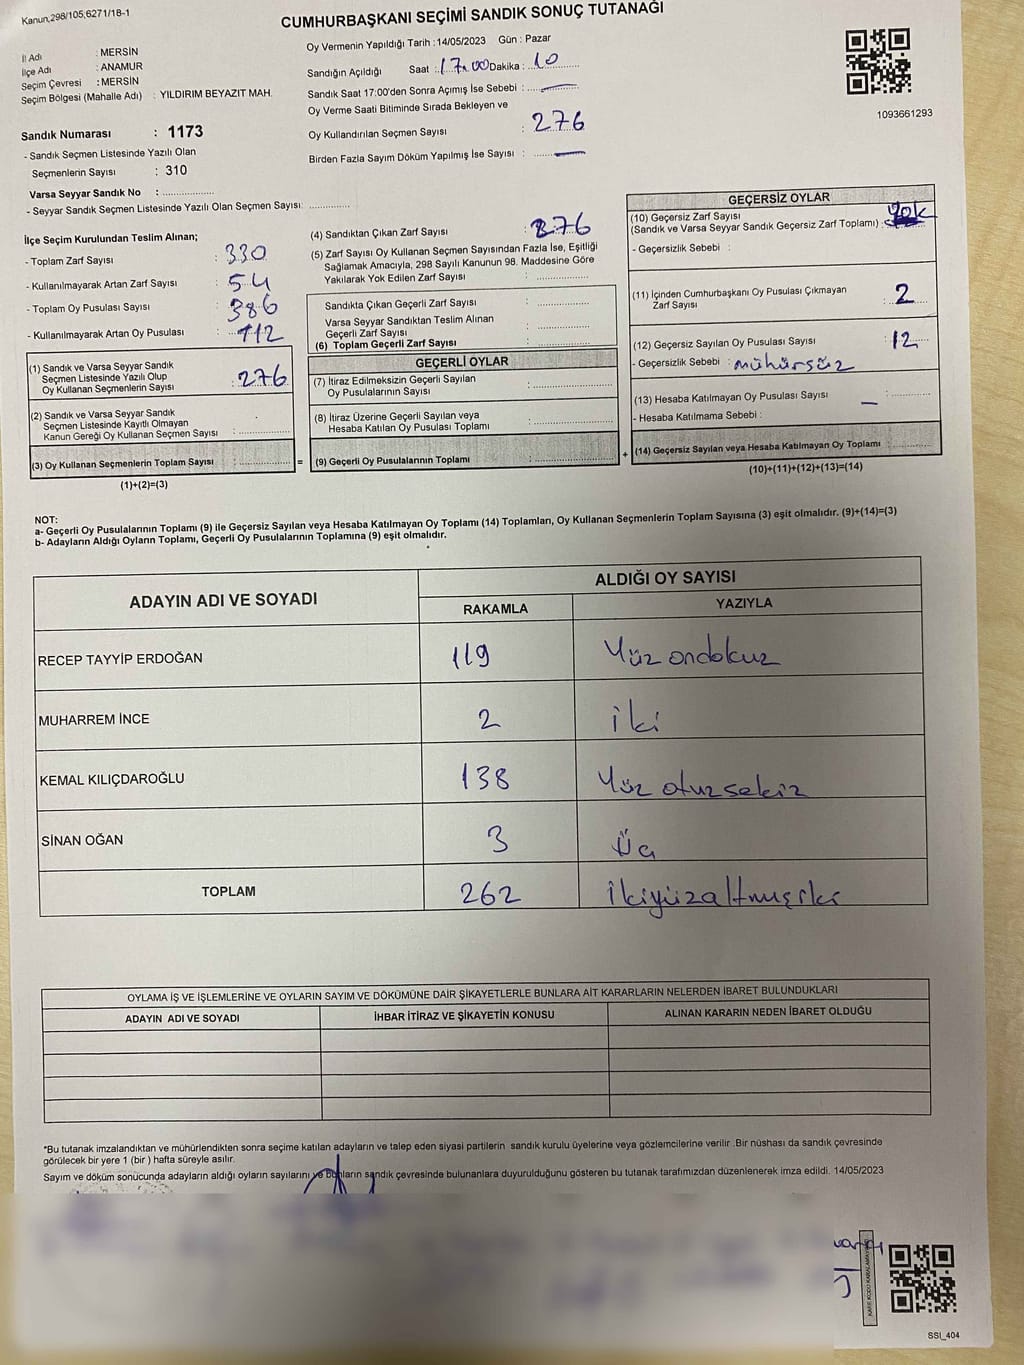 Kanun,298/105;6271/18-1
CUMHURBAŞKANI SEÇİMİ SANDIK SONUÇ TUTANAĞI
İl Adı : MERSİN
İlçe Adı : ANAMUR
Seçim Çevresi : MERSİN
Seçim Bölgesi (Mahalle Adı) : YILDIRIM BEYAZIT MAH.
Sandık Numarası : 1173
- Sandık Seçmen Listesinde Yazılı Olan
Seçmenlerin Sayısı : 310
Varsa Seyyar Sandık No :
- Seyyar Sandık Seçmen Listesinde Yazılı Olan Seçmen Sayısı:
Oy Vermenin Yapıldığı Tarih : 14/05/2023 Gün : Pazar
Sandığın Açıldığı Saat : 17.00 Dakika : 10
Sandık Saat 17:00'den Sonra Açımış İse Sebebi : —
Oy Verme Saati Bitiminde Sırada Bekleyen ve
Oy Kullandırılan Seçmen Sayısı : 276
Birden Fazla Sayım Döküm Yapılmış İse Sayısı : —
1093661293
İlçe Seçim Kurulundan Teslim Alınan;
- Toplam Zarf Sayısı : 330
- Kullanılmayarak Artan Zarf Sayısı : 54
- Toplam Oy Pusulası Sayısı : 386
- Kullanılmayarak Artan Oy Pusulası : 112
(1) Sandık ve Varsa Seyyar Sandık
Seçmen Listesinde Yazılı Olup
Oy Kullanan Seçmenlerin Sayısı : 276
(2) Sandık ve Varsa Seyyar Sandık
Seçmen Listesinde Kayıtlı Olmayan
Kanun Gereği Oy Kullanan Seçmen Sayısı :
(3) Oy Kullanan Seçmenlerin Toplam Sayısı :
(1)+(2)=(3)
(4) Sandıktan Çıkan Zarf Sayısı : 276
(5) Zarf Sayısı Oy Kullanan Seçmen Sayısından Fazla İse, Eşitliği
Sağlamak Amacıyla, 298 Sayılı Kanunun 98. Maddesine Göre
Yakılarak Yok Edilen Zarf Sayısı :
Sandıkta Çıkan Geçerli Zarf Sayısı :
Varsa Seyyar Sandıktan Teslim Alınan
Geçerli Zarf Sayısı :
(6) Toplam Geçerli Zarf Sayısı :
GEÇERLİ OYLAR
(7) İtiraz Edilmeksizin Geçerli Sayılan
Oy Pusulalarının Sayısı :
(8) İtiraz Üzerine Geçerli Sayılan veya
Hesaba Katılan Oy Pusulası Toplamı :
= (9) Geçerli Oy Pusulalarının Toplamı :
GEÇERSİZ OYLAR
(10) Geçersiz Zarf Sayısı
(Sandık ve Varsa Seyyar Sandık Geçersiz Zarf Toplamı) : yok
- Geçersizlik Sebebi :
(11) İçinden Cumhurbaşkanı Oy Pusulası Çıkmayan
Zarf Sayısı : 2
(12) Geçersiz Sayılan Oy Pusulası Sayısı : 12
- Geçersizlik Sebebi : mühürsüz
(13) Hesaba Katılmayan Oy Pusulası Sayısı — :
- Hesaba Katılmama Sebebi :
+ (14) Geçersiz Sayılan veya Hesaba Katılmayan Oy Toplamı :
(10)+(11)+(12)+(13)=(14)
NOT:
a- Geçerli Oy Pusulalarının Toplamı (9) ile Geçersiz Sayılan veya Hesaba Katılmayan Oy Toplamı (14) Toplamları, Oy Kullanan Seçmenlerin Toplam Sayısına (3) eşit olmalıdır. (9)+(14)=(3)
b- Adayların Aldığı Oyların Toplamı, Geçerli Oy Pusulalarının Toplamına (9) eşit olmalıdır.
ADAYIN ADI VE SOYADI
ALDIĞI OY SAYISI
RAKAMLA YAZIYLA
RECEP TAYYİP ERDOĞAN 119 Yüz ondokuz
MUHARREM İNCE 2 iki
KEMAL KILIÇDAROĞLU 138 Yüz otuzsekiz
SİNAN OĞAN 3 Üç
TOPLAM 262 İkiyüzaltmışiki
OYLAMA İŞ VE İŞLEMLERİNE VE OYLARIN SAYIM VE DÖKÜMÜNE DAİR ŞİKAYETLERLE BUNLARA AİT KARARLARIN NELERDEN İBARET BULUNDUKLARI
ADAYIN ADI VE SOYADI İHBAR İTİRAZ VE ŞİKAYETİN KONUSU ALINAN KARARIN NEDEN İBARET OLDUĞU
*Bu tutanak imzalandıktan ve mühürlendikten sonra seçime katılan adayların ve talep eden siyasi partilerin sandık kurulu üyelerine veya gözlemcilerine verilir .Bir nüshası da sandık çevresinde
görülecek bir yere 1 (bir ) hafta süreyle asılır.
Sayım ve döküm sonucunda adayların aldığı oyların sayılarını ve bunların sandık çevresinde bulunanlara duyurulduğunu gösteren bu tutanak tarafımızdan düzenlenerek imza edildi. 14/05/2023
SSI_404